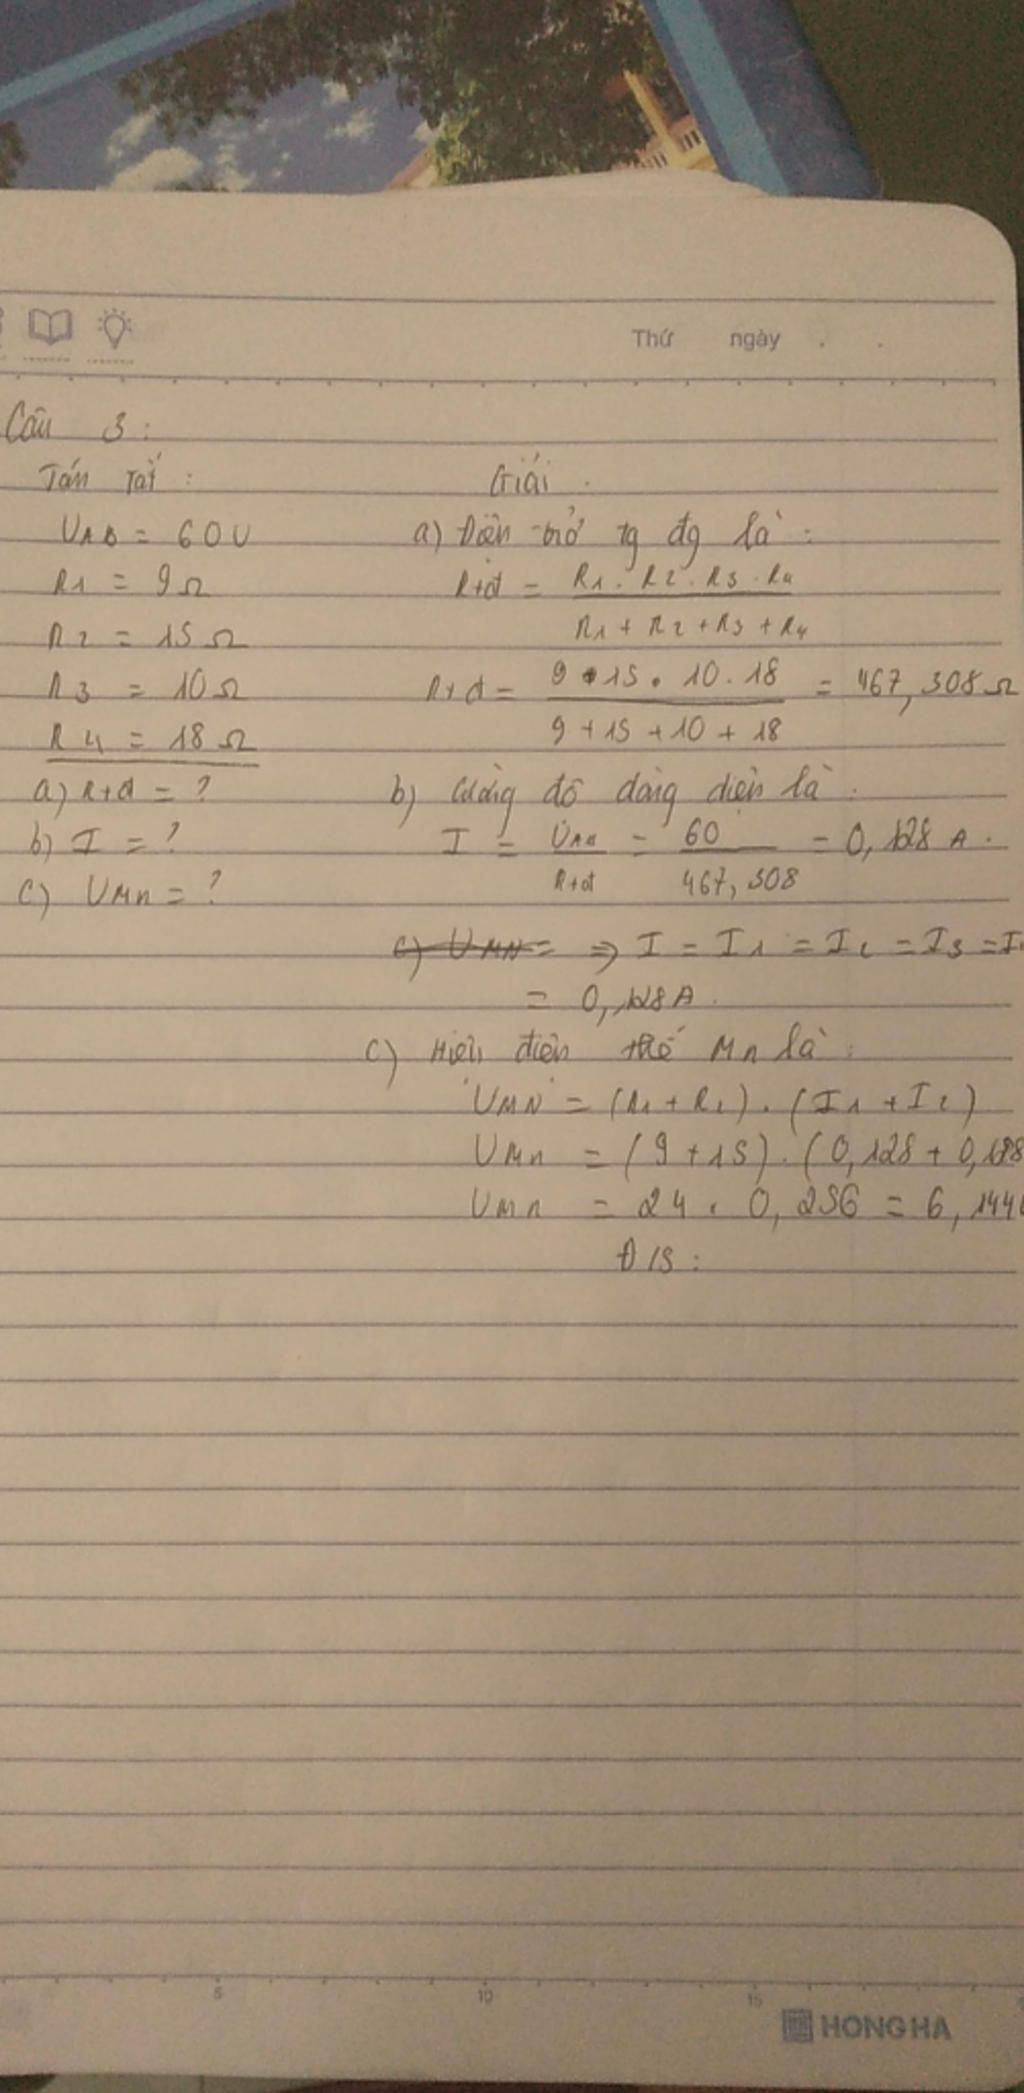 Thứ ngày . .
Câu 3:
Tóm tắt :
UAB = 60V
R1 = 9Ω
R2 = 15Ω
R3 = 10Ω
R4 = 18Ω
a) Rtđ = ?
b) I = ?
c) UMN = ?
Giải .
a) Điện trở tg đg là :
Rtđ = R1 . R2 . R3 . R4
R1 + R2 + R3 + R4
Rtđ = 9 . 15 . 10 . 18 = 467,308 Ω
9 + 15 + 10 + 18
b) Cường độ dòng điện là :
I = UAB = 60 = 0,128 A .
Rtđ 467,308
c) UMN = ⇒ I = I1 = I2 = I3 = I
= 0,128A .
c) Hiệu điện thế MN là :
UMN = (R1 + R2) . (I1 + I2)
UMN = (9 + 15) . (0,128 + 0,128
UMN = 24 . 0,256 = 6,144
Đ/S :
5 10 15
HONG HA